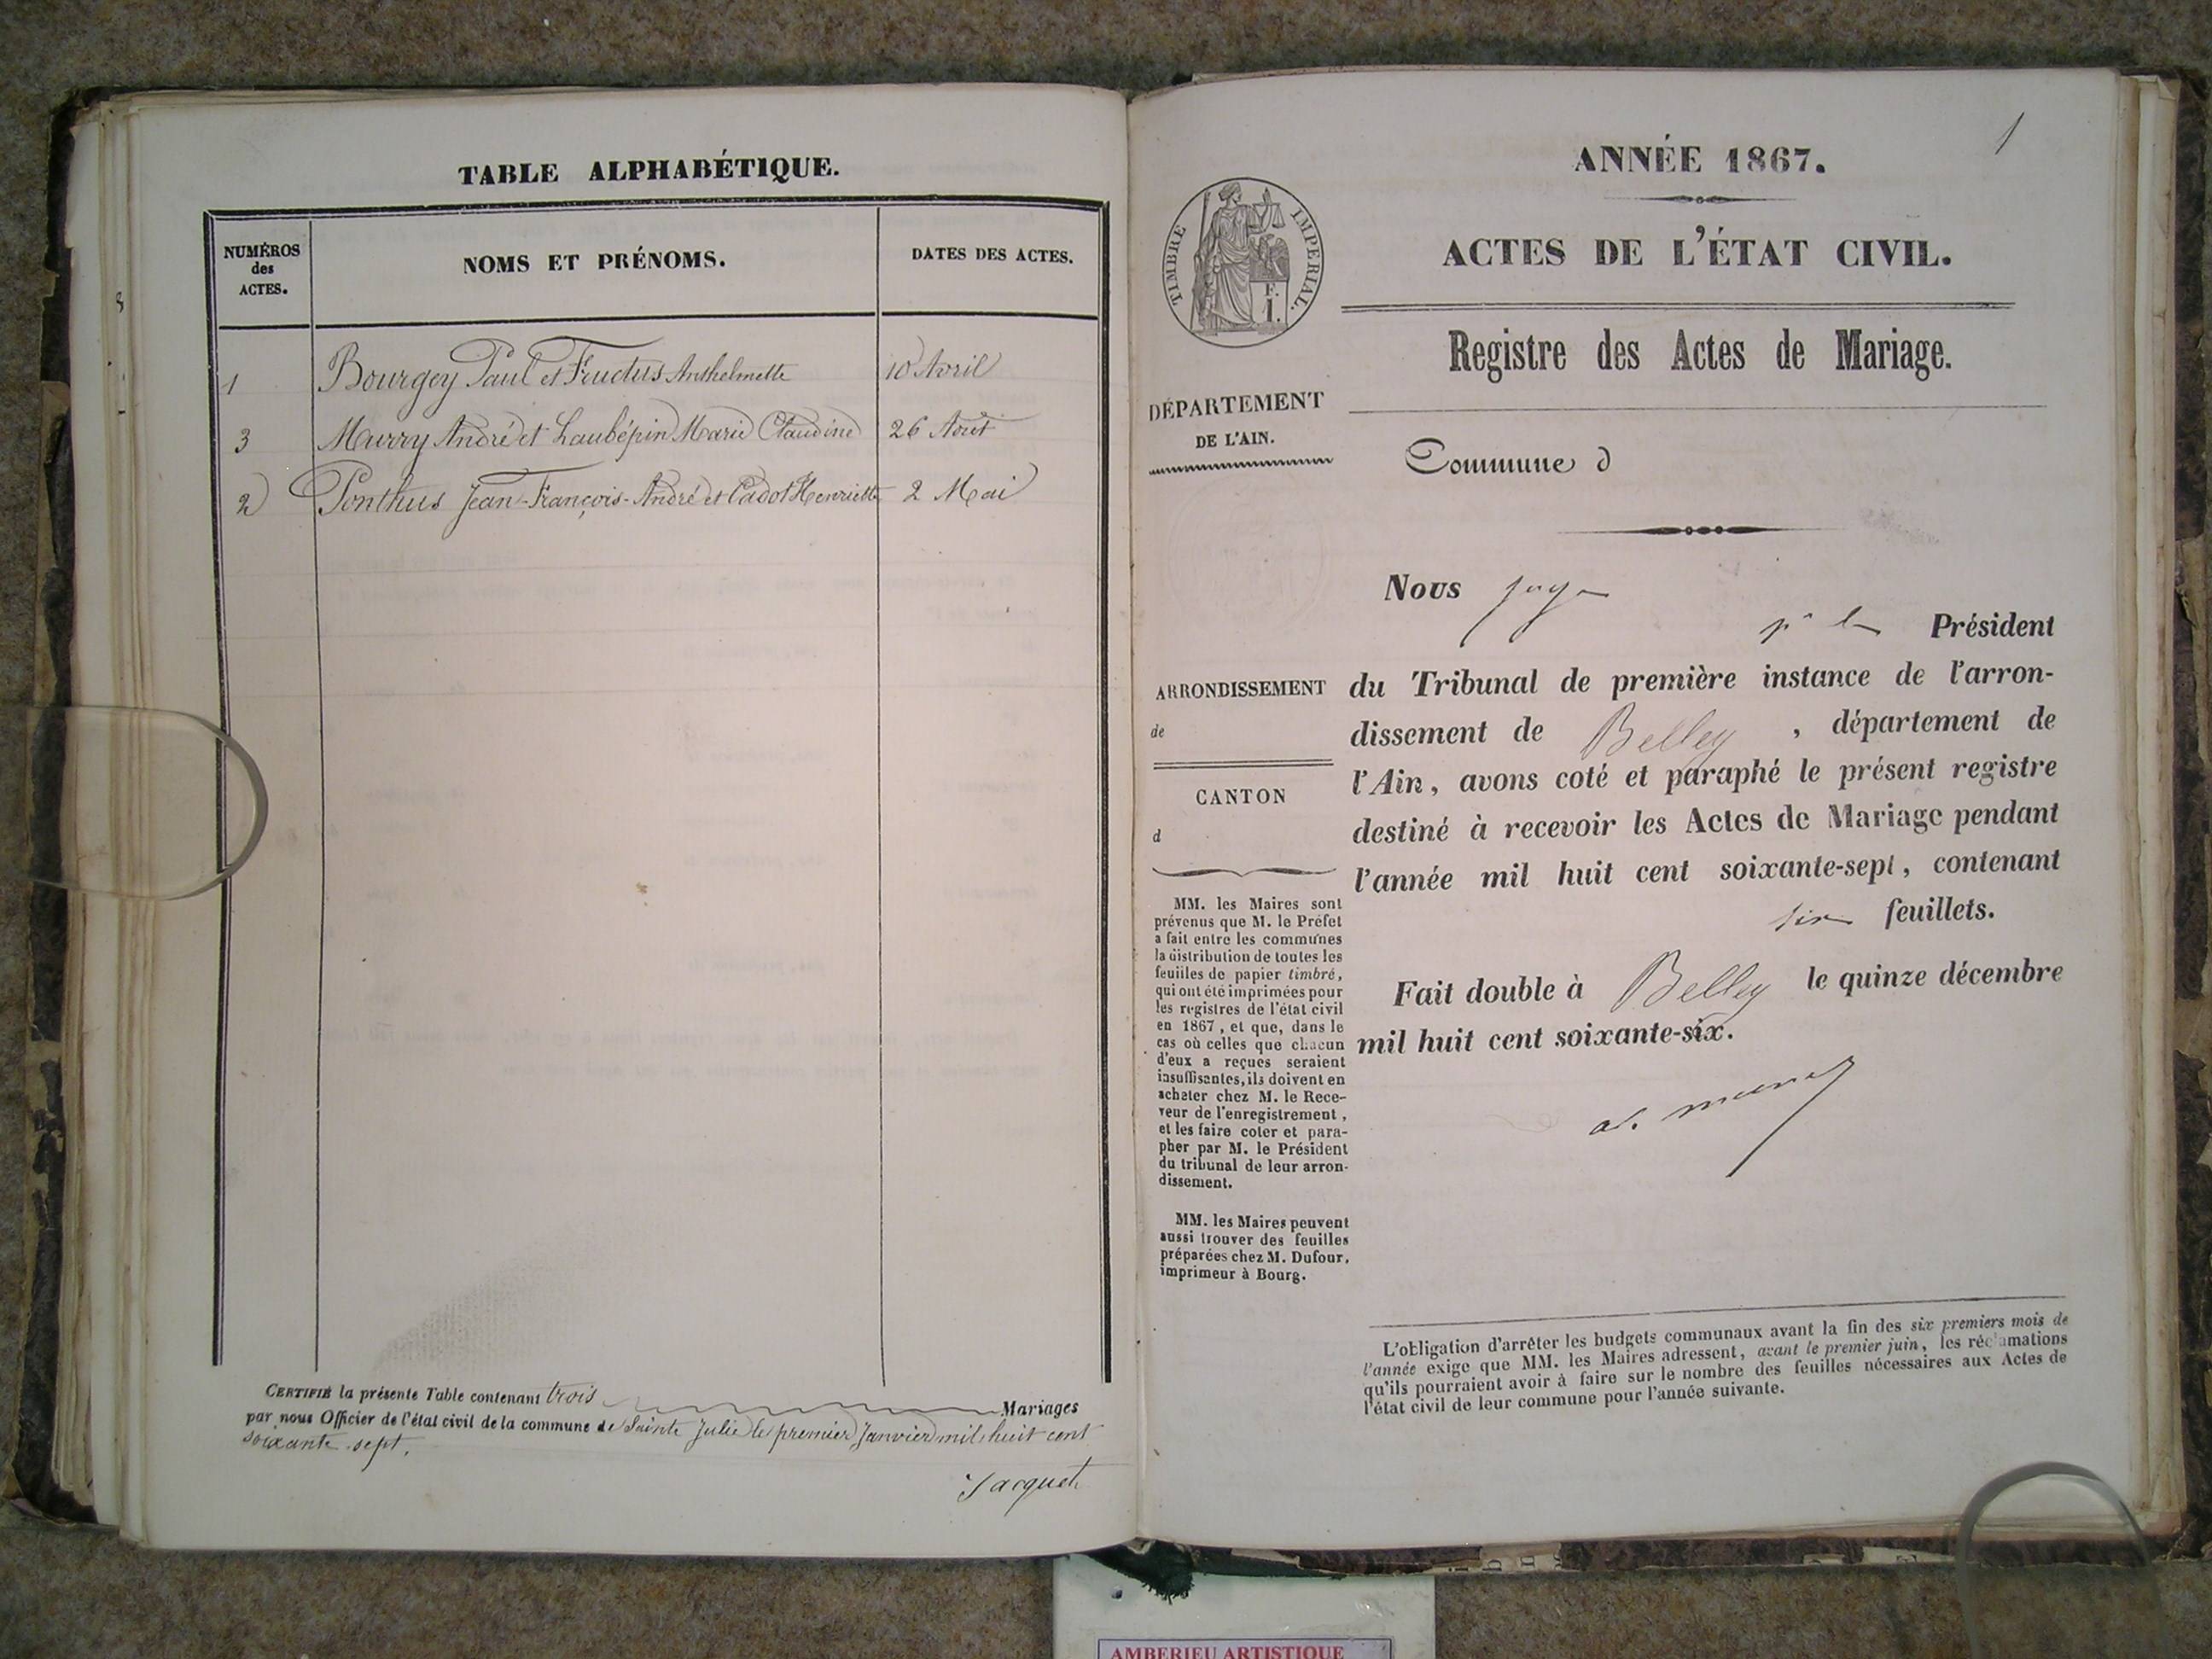 TABLE ALPHABÉTIQUE.
NUMÉROS
des
ACTES.
NOMS ET PRÉNOMS.
DATES DES ACTES.
1 Bourgey Paul et Fructus Anthelmette 10 Avril
3 Murry André et Laubépin Marie Claudine 26 Aout
2 Ponthus Jean-François-André et Cadot Henriette 2 Mai
CERTIFIÉ la présente Table contenant trois Mariages
par nous Officier de l'état civil de la commune de Sainte Julie le premier Janvier mil huit cent
soixante-sept.
Jacquet
1
ANNÉE 1867.
TIMBRE IMPERIAL.
F.
1.
ACTES DE L'ÉTAT CIVIL.
Registre des Actes de Mariage.
DÉPARTEMENT
DE L'AIN.
Commune d
Nous juge
pr le Président
ARRONDISSEMENT
de
du Tribunal de première instance de l'arron-
dissement de Belley, département de
l'Ain, avons coté et paraphé le présent registre
destiné à recevoir les Actes de Mariage pendant
l'année mil huit cent soixante-sept, contenant
six feuillets.
Fait double à Belley le quinze décembre
mil huit cent soixante-six.
CANTON
d
MM. les Maires sont
prévenus que M. le Préfet
a fait entre les communes
la distribution de toutes les
feuilles de papier timbré,
qui ont été imprimées pour
les registres de l'état civil
en 1867, et que, dans le
cas où celles que chacun
d'eux a reçues seraient
insuffisantes, ils doivent en
acheter chez M. le Rece-
veur de l'enregistrement,
et les faire coter et para-
pher par M. le Président
du tribunal de leur arron-
dissement.
MM. les Maires peuvent
aussi trouver des feuilles
préparées chez M. Dufour,
imprimeur à Bourg.
L'obligation d'arrêter les budgets communaux avant la fin des six premiers mois de
l'année exige que MM. les Maires adressent, avant le premier juin, les réclamations
qu'ils pourraient avoir à faire sur le nombre des feuilles nécessaires aux Actes de
l'état civil de leur commune pour l'année suivante.
AMBERIEU ARTISTIQUE